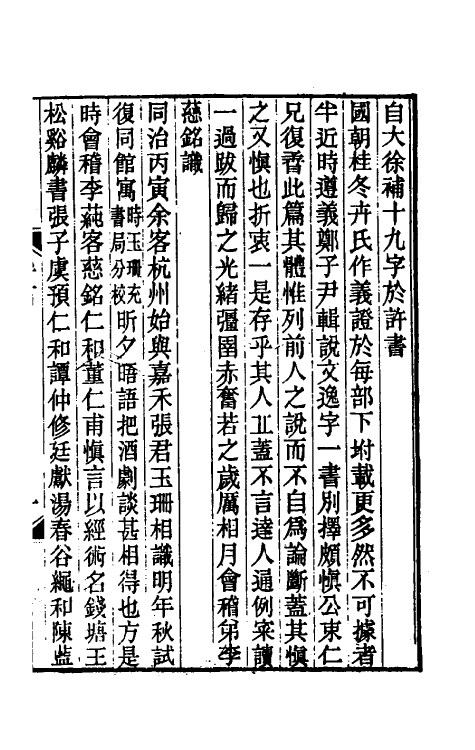 自大徐補十九字於許書
國朝桂冬卉氏作義證於每部下坿載更多然不可據者
半近時遵義鄭子尹輯說文逸字一書別擇頗慎公束仁
兄復晉此篇其體惟列前人之說而不自爲論斷蓋其慎
之又慎也折衷一是存乎其人丠蓋不言達人通例寀讀
一過跋而歸之光緒彊圉赤奮若之歲厲相月會稽弟李
慈銘識
同治丙寅余客杭州始與嘉禾張君玉珊相識明年秋試
復同館寓時玉珊充書局分校昕夕晤語把酒劇談甚相得也方是
時會稽李蒓客慈銘仁和董仁甫慎言以經術名錢塘王
松谿麟書張子虞預仁和譚仲修廷獻湯春谷繩和陳藍